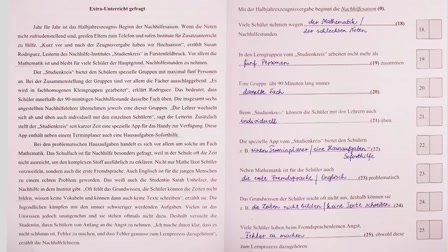 Extra-Unterricht gefragt
Jahr für Jahr ist das Halbjahreszeugnis Beginn der Nachhilfesaison. Wenn die Noten
nicht zufriedenstellend sind, greifen Eltern zum Telefon und rufen Institute für Zusatzunterricht
zu Hilfe. „Kurz vor und nach der Zeugnisvergabe haben wir Hochsaison“, erzählt Susan
Rodriguez, Leiterin des Nachhilfe-Instituts „Studienkreis“ in Fürstenfeldbruck. Vor allem die
Mathematik ist und bleibt für viele Schüler der Hauptgrund, Nachhilfestunden zu nehmen.
Der „Studienkreis“ bietet den Schülern spezielle Gruppen mit maximal fünf Personen
an. Bei der Zusammenstellung der Gruppen sind vor allem die Fächer ausschlaggebend. „Es
wird in fachhomogenen Kleingruppen gearbeitet“, erklärt Rodriguez. Das bedeutet, dass
Schüler innerhalb der 90-minütigen Nachhilfestunden dasselbe Fach üben. Die insgesamt sechs
angestellten Nachhilfelehrer übernehmen jeweils eine dieser Gruppen. „Die Lehrer wechseln
sich ab und üben auch individuell mit den einzelnen Schülern“, sagt die Leiterin. Zusätzlich
stellt der „Studienkreis“ seit kurzer Zeit eine spezielle App für das Handy zur Verfügung. Diese
App enthält neben einem Terminplaner auch eine Hausaufgaben-Soforthilfe.
Bei den problematischen Hauptfächern handelt es sich vor allem um solche im Fach
Mathematik. Das Schulfach ist für Nachhilfe besonders gefragt, weil in der Schule oft die Zeit
nicht ausreicht, um den komplexen Stoff ausführlich zu erklären. Nicht nur Mathe lässt Schüler
verzweifeln, sondern auch die erste Fremdsprache. Auch Englisch ist für die jungen Menschen
zu einem echten Problem geworden. Das weiß auch die Studentin Sarah
Nachhilfe in dem Institut gibt. „Oft fehlt das Grundwissen, die Schüler können die Zeiten nicht
bilden, wissen keine Vokabeln und können dann auch keine Texte schreiben“, erzählt sie. Die
Jugendlichen kämpfen mit den immer schwieriger werdenden Aufgaben. Vielen ist das
Unwissen jedoch unangenehm und sie stehen oftmals nicht dazu. Deshalb versucht die
Studentin, ihren Schülern von Anfang an die Angst zu nehmen. „Ich mache ihnen klar, dass es
nicht schlimm ist, Fehler zu machen, und dass Fehler genauso zum Lernprozess dazugehören“,
erzählt die Nachhilfelehrerin.
Mit der Halbjahreszeugnisvergabe beginnt die Nachhilfesaison (0).
Viele Schüler nehmen wegen der Mathematik / (18)
Nachhilfestunden. der schlechten Noten
18.
In den Lerngruppen vom „Studienkreis“ arbeiten nicht mehr als
fünf Personen (19) zusammen
19.
Eine Gruppe übt 90 Minuten lang immer
dasselbe Fach (20)
20.
Beim „Studienkreis“ können die Schüler mit den Lehrern auch
individuell (21) üben
21.
Die spezielle App vom „Studienkreis“ bietet den Schülern
z. B. einen Terminplaner / eine Hausaufgaben- (22)
Soforthilfe
22.
Neben Mathematik ist für die Schüler auch
die erste Fremdsprache / Englisch (23) problematisch
23.
Das Grundwissen der Schüler reicht oft nicht aus, deshalb können sie
z. B. die Zeiten nicht bilden / keine Texte schreiben (24)
24.
Viele Schüler haben beim Fremdsprachenlernen Angst,
Fehler zu machen (25), obwohl diese
zum Lernprozess dazugehören.
25.